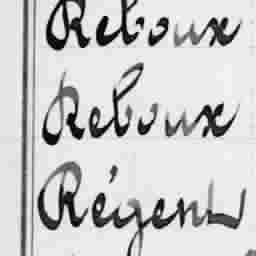 Reboux
Reboux
Régent